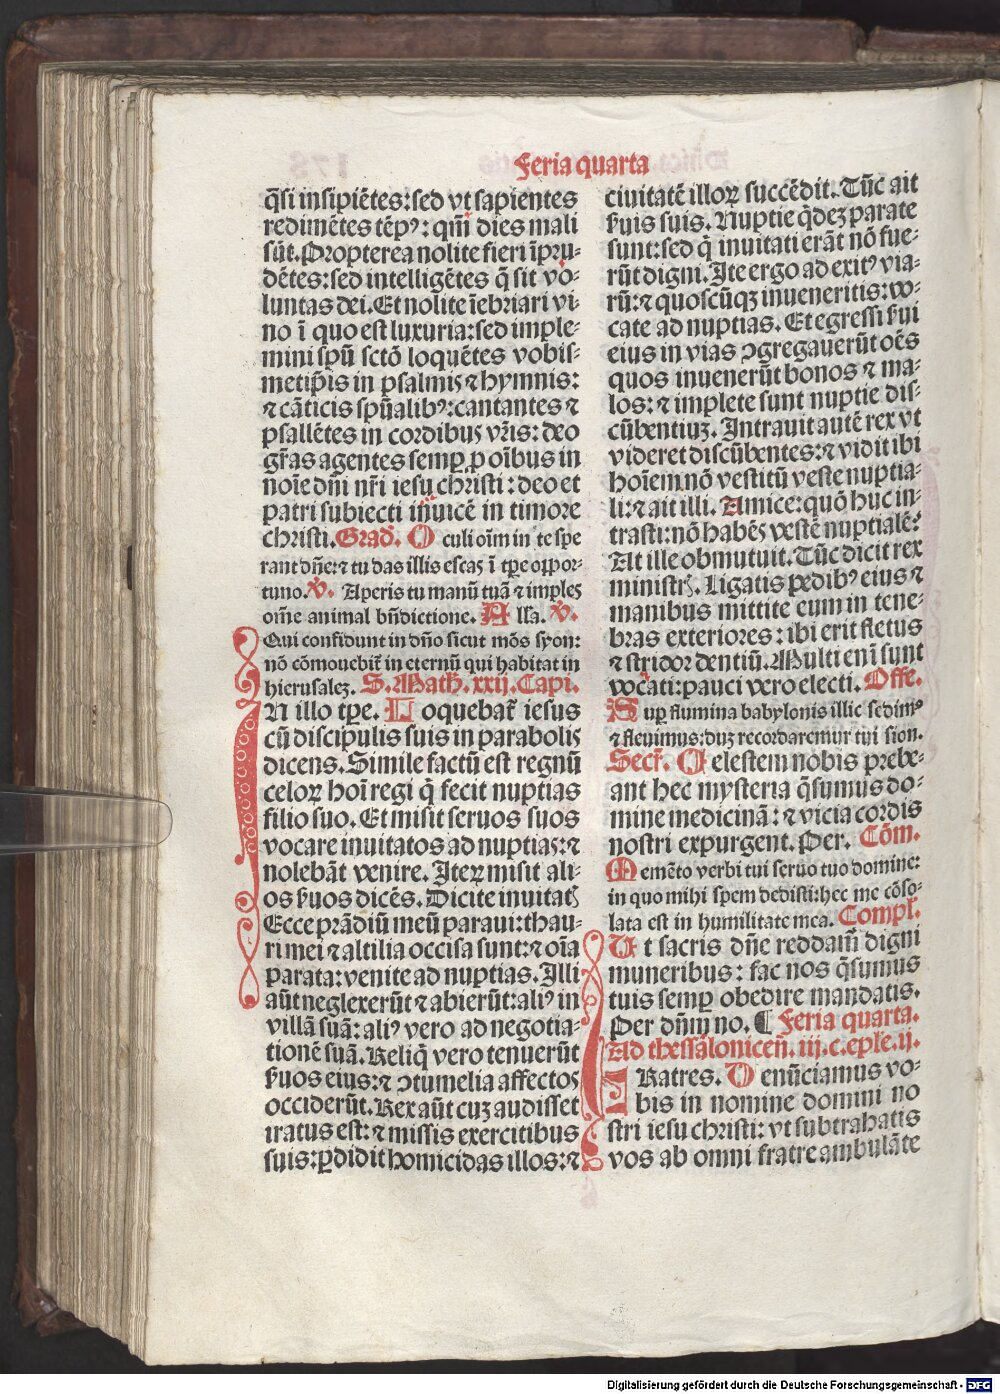 Feria quarta
q̄si insipiētes:sed vt sapientes
redimētes tēpꝰ: qm̄ dies mali
sūt.Propterea nolite fieri īpru-
dētes:sed intelligētes q̄ sit vo-
luntas dei.Et nolite īebriari vi-
no ī quo est luxuria:sed imple-
mini spū sctō loquētes vobis-
metip̄is in psalmis ⁊ hymnis:
⁊ cāticis spūalibꝰ:cantantes ⁊
psallētes in cordibus vr̄is: deo
gr̄as agentes semꝑ ꝓ oībus in
noīe dn̄i nr̄i iesu christi : deo et
patri subiecti inuicē in timore
christi.Grad̄. O culi oīm in te spe
rant dn̄e:⁊ tu das illis escas ī tꝑe oppor-
tuno.℣. Aperis tu manū tuā ⁊ imples
om̄e animal bn̄dictione. A ll'a. ℣.
Qui confidunt in dn̄o sicut mōs syon:
nō cōmouebit̄ in eternū qui habitat in
hierusalez. S. Math̄. xxij. Capi.
I N illo tꝑe. L oquebat̄ iesus
cū discipulis suis in parabolis
dicens.Simile factū est regnū
celoꝝ hoī regi q̄ fecit nuptias
filio suo. Et misit seruos suos
vocare inuitatos ad nuptias:⁊
nolebāt venire. Iteꝝ misit ali-
os ẜuos dicēs. Dicite inuitatꝭ
Ecce prādiū meū paraui:thau-
ri mei ⁊ altilia occisa sunt:⁊ oīa
parata: venite ad nuptias. Illi
aūt neglexerūt ⁊ abierūt:aliꝰ in
villā suā: aliꝰ vero ad negotia-
tionē suā. Reliq̄ vero tenuerūt
ẜuos eius:⁊ ꝯtumelia affectos
occiderūt. Rex aūt cuz audisset
iratus est: ⁊ missis exercitibus
suis:ꝑdidit homicidas illos:⁊
ciuitatē illoꝝ succēdit. Tūc ait
ẜuis suis. Nuptie q̄dez parate
sunt:sed q̄ inuitati erāt nō fue-
rūt digni. Ite ergo ad exitꝰ via-
rū:⁊ quoscūqꝫ inueneritis:vo-
cate ad nuptias. Et egressi ẜui
eius in vias ꝯgregauerūt oēs
quos inuenerūt bonos ⁊ ma-
los: ⁊ implete sunt nuptie dis-
cūbentiuꝫ. Intrauit autē rex vt
videret discūbentes:⁊ vidit ibi
hoīem nō vestitū veste nuptia-
li:⁊ ait illi. Amice: quō huc in-
trasti: nō habēs vestē nuptialē?
At ille obmutuit. Tūc dicit rex
ministrꝭ. Ligatis pedibꝰ eius ⁊
manibus mittite eum in tene-
bras exteriores: ibi erit fletus
⁊ stridor dentiū. Multi eni sunt
vocati: pauci vero electi. Offe.
S uꝑ flumina babylonis illic sedimꝰ
⁊ fleuimus:duꝫ recordaremur tui sion.
Secr̄. C elestem nobis prebe-
ant hec mysteria q̄sumus do-
mine medicinā: ⁊ vicia cordis
nostri expurgent. Per. Cōm.
M emēto verbi tui seruo tuo domine:
in quo mihi spem dedisti:hec me cōso-
lata est in humilitate mea. Compl̄.
U t sacris dn̄e reddam̄ digni
muneribus: fac nos q̄sumus
tuis semꝑ obedire mandatis.
Per dn̄m no. ¶ Feria quarta.
Ad thessalonicen̄. iij.c.epl'e.ij.
F Ratres. D enūciamus vo-
bis in nomine domini no
stri iesu christi: vt subtrahatis
vos ab omni fratre ambulāte
Digitalisierung gefördert durch die Deutsche Forschungsgemeinschaft - DFG